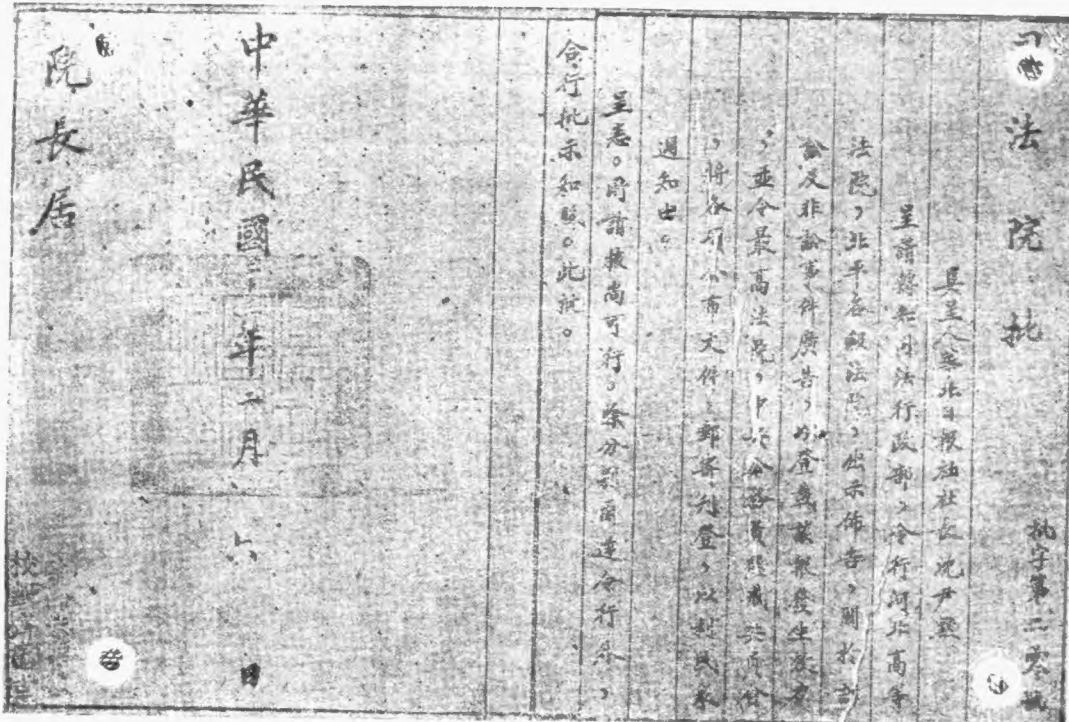 司法院批
批字第二零號
具呈人華北日報社社長沈尹默
呈請轉令司法行政部,令行河北高等
法院,北平各級法院,出示佈告,關於訴
訟及非訟事件廣告,登載該報發生效力
,並令最高法院,中央公務員懲戒委員會
,將各項公布文件,郵寄刊登,以利民眾
週知由。
呈悉。所請核尚可行,除分別函達令行外,
合行批示知照。此批。
中華民國二十一年二月六日
院長居
校對